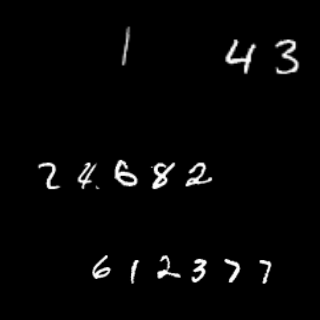 1 43
24682
612377